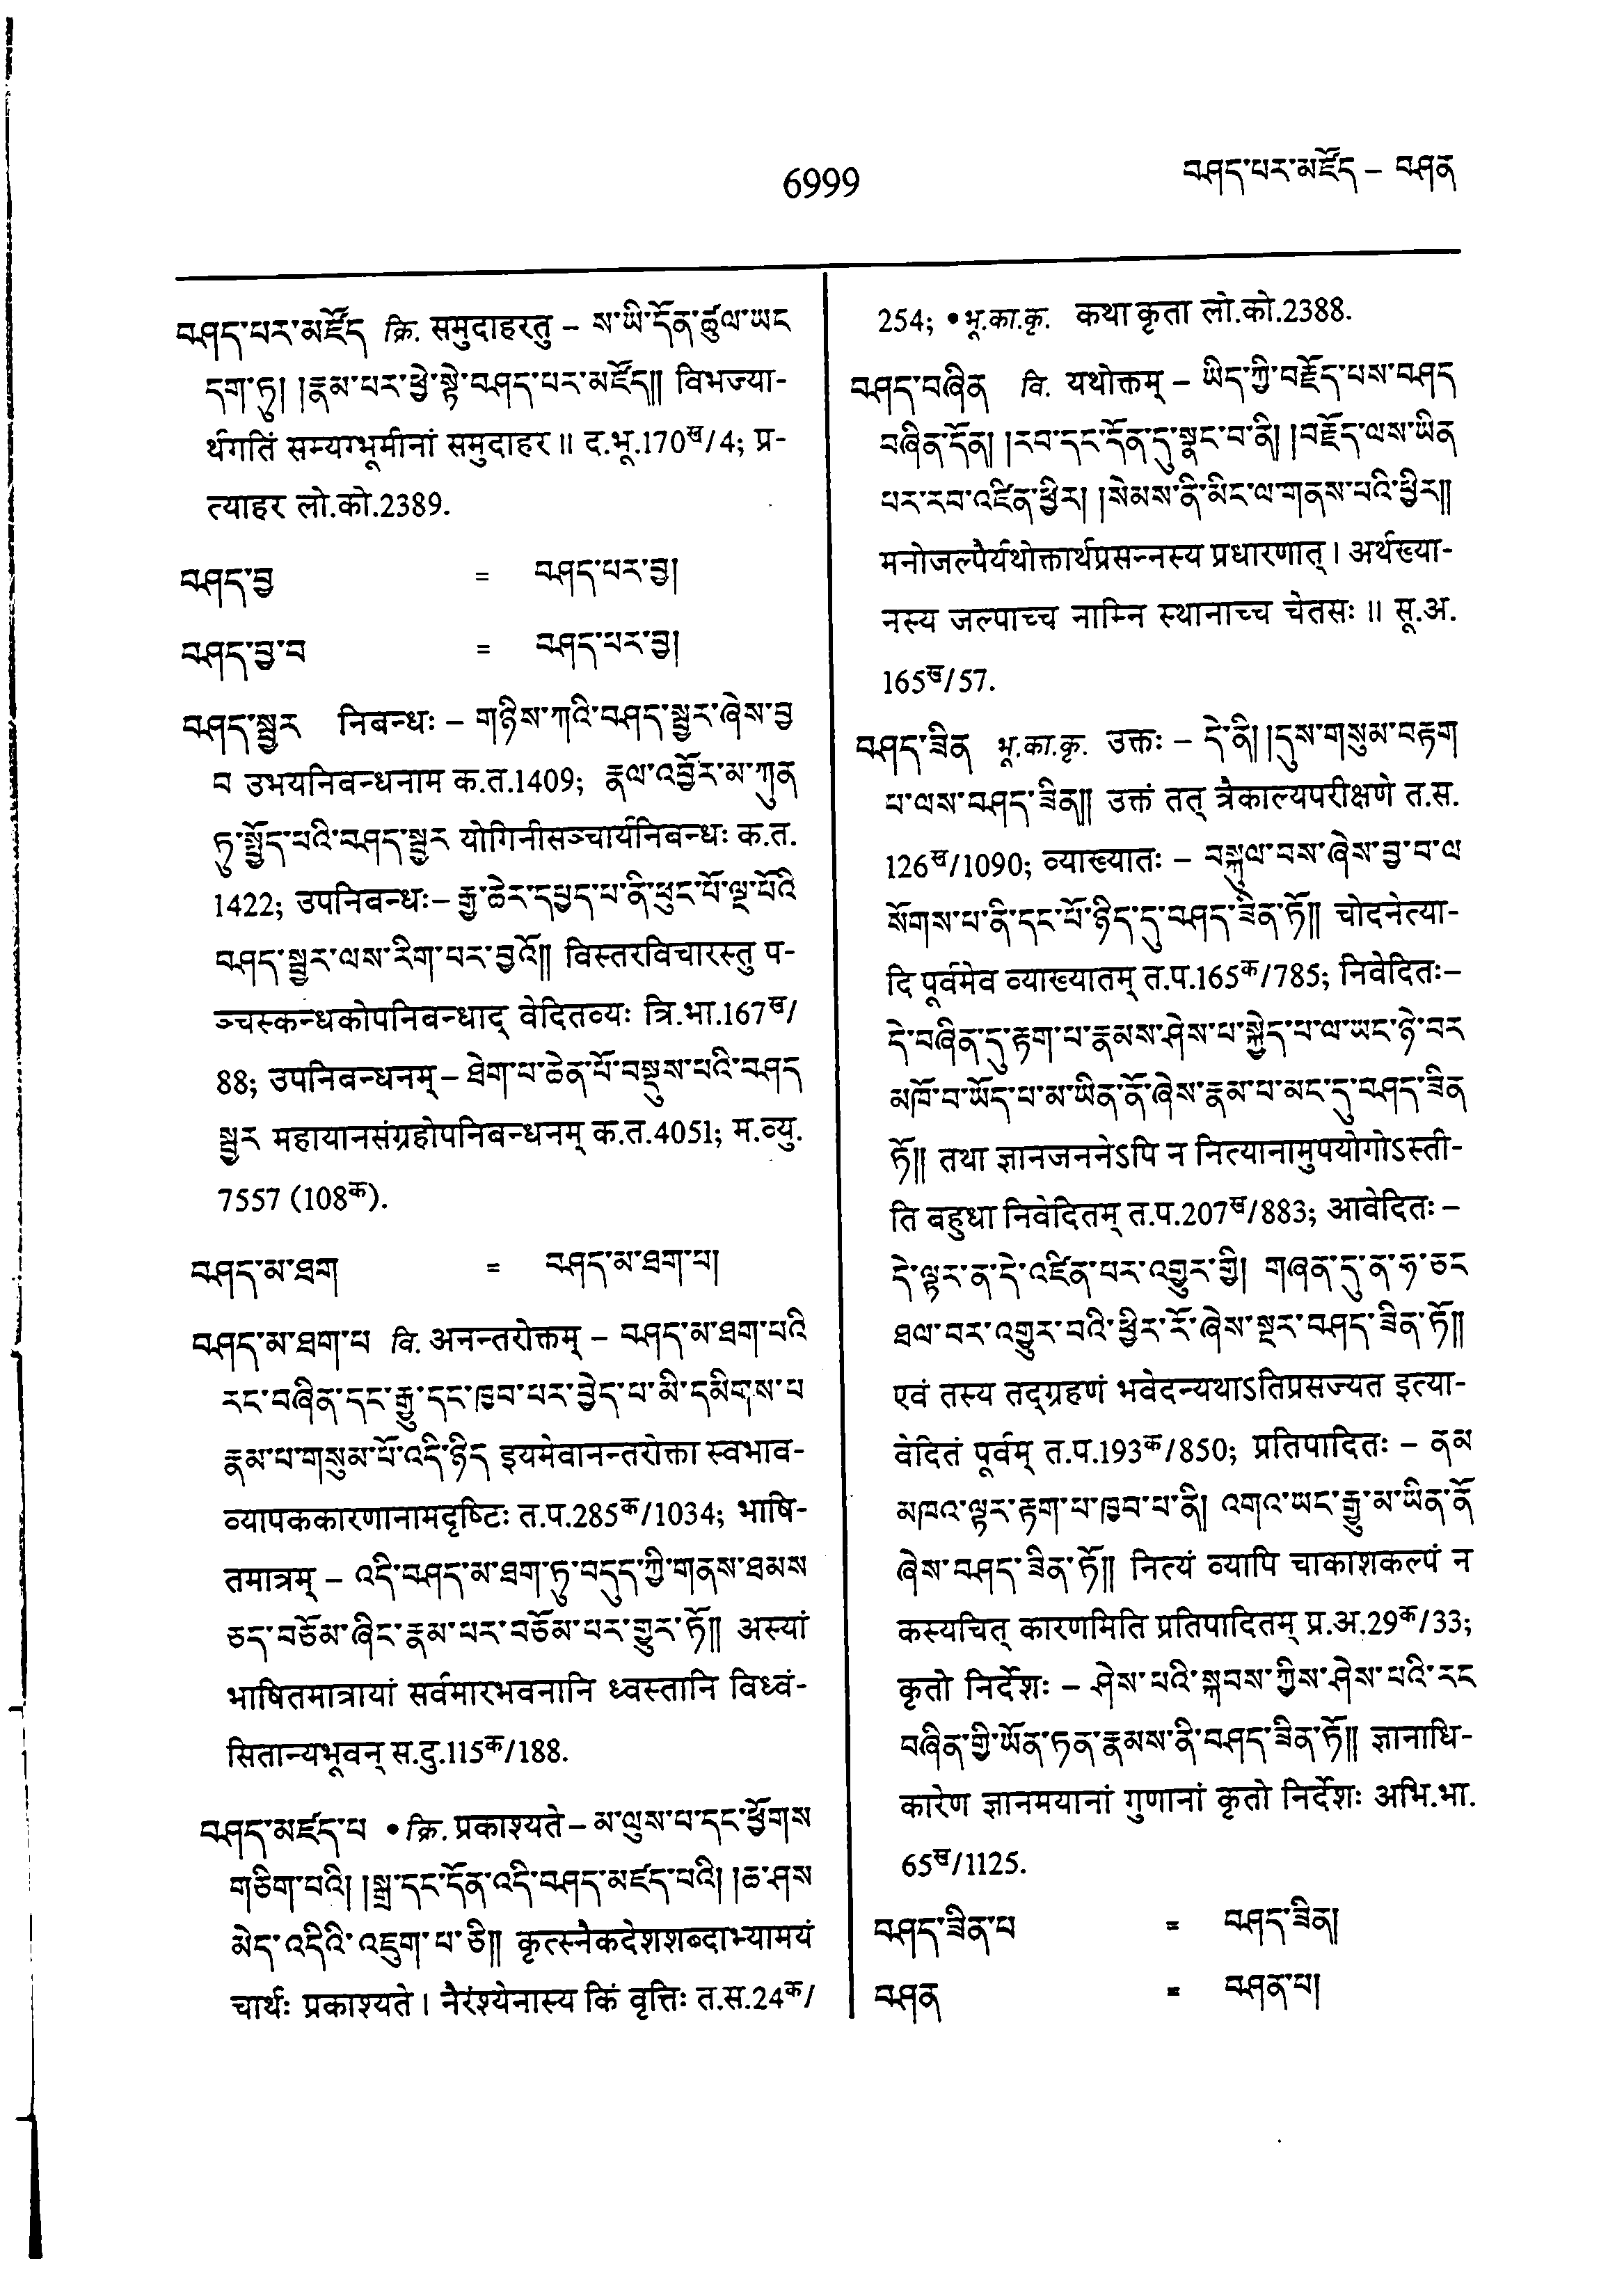 6999
བཤད་པར་མཛོད – བཤན
བཤད་པར་མཛོད क्रि. समुदाहरतु – ས་ཡི་དོན་ཚུལ་ཡང
དག་ཏུ། །རྣམ་པར་ཕྱེ་སྟེ་བཤད་པར་མཛོད།། विभज्या-
र्थगतिं सम्यग्भूमीनां समुदाहर ॥ द.भू.170ख/4; प्र-
त्याहर लो.को.2389.
བཤད་བྱ = བཤད་པར་བྱ།
བཤད་བྱ་བ = བཤད་པར་བྱ།
བཤད་སྦྱར निबन्धः – གཉིས་ཀའི་བཤད་སྦྱར་ཞེས་བྱ
བ उभयनिबन्धनाम क.त.1409; རྣལ་འབྱོར་མ་ཀུན
ཏུ་སྤྱོད་པའི་བཤད་སྦྱར योगिनीसञ्चार्यनिबन्धः क.त.
1422; उपनिबन्धः – རྒྱ་ཆེར་དཔྱད་པ་ནི་ཕུང་པོ་ལྔ་པོའི
བཤད་སྦྱར་ལས་རིག་པར་བྱའོ།། विस्तरविचारस्तु प-
ञ्चस्कन्धकोपनिबन्धाद् वेदितव्यः त्रि.भा.167ख/
88; उपनिबन्धनम् – ཐེག་པ་ཆེན་པོ་བསྡུས་པའི་བཤད
སྦྱར महायानसंग्रहोपनिबन्धनम् क.त.4051; म.व्यु.
7557 (108क).
བཤད་མ་ཐག = བཤད་མ་ཐག་པ།
བཤད་མ་ཐག་པ वि. अनन्तरोक्तम् – བཤད་མ་ཐག་པའི
རང་བཞིན་དང་རྒྱུ་དང་ཁྱབ་པར་བྱེད་པ་མི་དམིགས་པ
རྣམ་པ་གསུམ་པོ་འདི་ཉིད इयमेवानन्तरोक्ता स्वभाव-
व्यापककारणानामदृष्टिः त.प.285क/1034; भाषि-
तमात्रम् – འདི་བཤད་མ་ཐག་ཏུ་བདུད་ཀྱི་གནས་ཐམས
ཅད་བཅོམ་ཞིང་རྣམ་པར་བཅོམ་པར་གྱུར་ཏོ།། अस्यां
भाषितमात्रायां सर्वमारभवनानि ध्वस्तानि विध्वं-
सितान्यभूवन् स.दु.115क/188.
བཤད་མཛད་པ • क्रि. प्रकाश्यते – མ་ལུས་པ་དང་ཕྱོགས
གཅིག་པའི། །སྒྲ་དང་དོན་འདི་བཤད་མཛད་པའི། །ཆ་ཤས
མེད་འདིའི་འཇུག་པ་ཅི།། कृत्स्नैकदेशशब्दाभ्यामयं
चार्थः प्रकाश्यते । नैरंश्येनास्य किं वृत्तिः त.स.24क/
254; • भू.का.कृ. कथा कृता लो.को.2388.
བཤད་བཞིན वि. यथोक्तम् – ཡིད་ཀྱི་བརྗོད་པས་བཤད
བཞིན་དོན། །རབ་དང་དོན་དུ་སྣང་བ་ནི། །བརྗོད་ལས་ཡིན
པར་རབ་འཛིན་ཕྱིར། །སེམས་ནི་མིང་ལ་གནས་པའི་ཕྱིར།།
मनोजल्पैर्यथोक्तार्थप्रसन्नस्य प्रधारणात् । अर्थख्या-
नस्य जल्पाच्च नाम्नि स्थानाच्च चेतसः ॥ सू.अ.
165ख/57.
བཤད་ཟིན भू.का.कृ. उक्तः – དེ་ནི། །དུས་གསུམ་བརྟག
པ་ལས་བཤད་ཟིན།། उक्तं तत् त्रैकाल्यपरीक्षणे त.स.
126ख/1090; व्याख्यातः – བསྐུལ་བས་ཞེས་བྱ་བ་ལ
སོགས་པ་ནི་དང་པོ་ཉིད་དུ་བཤད་ཟིན་ཏོ།། चोदनेत्या-
दि पूर्वमेव व्याख्यातम् त.प.165क/785; निवेदितः –
དེ་བཞིན་དུ་རྟག་པ་རྣམས་ཤེས་པ་སྐྱེད་པ་ལ་ཡང་ཉེ་བར
མཁོ་བ་ཡོད་པ་མ་ཡིན་ནོ་ཞེས་རྣམ་པ་མང་དུ་བཤད་ཟིན
ཏོ།། तथा ज्ञानजननेऽपि न नित्यानामुपयोगोऽस्ती-
ति बहुधा निवेदितम् त.प.207ख/883; आवेदितः –
དེ་ལྟར་ན་དེ་འཛིན་པར་འགྱུར་གྱི། གཞན་དུ་ན་ཧ་ཅང
ཐལ་བར་འགྱུར་བའི་ཕྱིར་རོ་ཞེས་སྔར་བཤད་ཟིན་ཏོ།།
एवं तस्य तद्ग्रहणं भवेदन्यथाऽतिप्रसज्यत इत्या-
वेदितं पूर्वम् त.प.193क/850; प्रतिपादितः – ནམ
མཁའ་ལྟར་རྟག་པ་ཁྱབ་པ་ནི། འགའ་ཡང་རྒྱུ་མ་ཡིན་ནོ
ཞེས་བཤད་ཟིན་ཏོ།། नित्यं व्यापि चाकाशकल्पं न
कस्यचित् कारणमिति प्रतिपादितम् प्र.अ.29क/33;
कृतो निर्देशः – ཤེས་པའི་སྐབས་ཀྱིས་ཤེས་པའི་རང
བཞིན་གྱི་ཡོན་ཏན་རྣམས་ནི་བཤད་ཟིན་ཏོ།། ज्ञानाधि-
कारेण ज्ञानमयानां गुणानां कृतो निर्देशः अभि.भा.
65ख/1125.
བཤད་ཟིན་པ = བཤད་ཟིན།
བཤན = བཤན་པ།